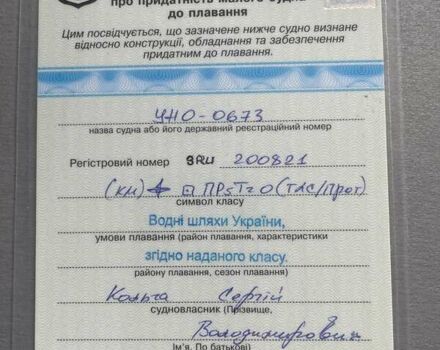 про придатність малого судна
до плавання
Цим посвідчується, що зазначене нижче судно визнане
відносно конструкції, обладнання та забезпечення
придатним до плавання.
УНО-0673
назва судна або його державний реєстраційний номер
Регістровий номер ЯRU 200821
(км) ПР5Т2 О (ТАС/Прот)
символ класу
Водні шляхи України,
умови плавання (район плавання, характеристики
згідно наданого класу.
району плавання, сезон плавання)
Сергій
судновласник (Прізвище,
Володимирович
Ім'я, По батькові)